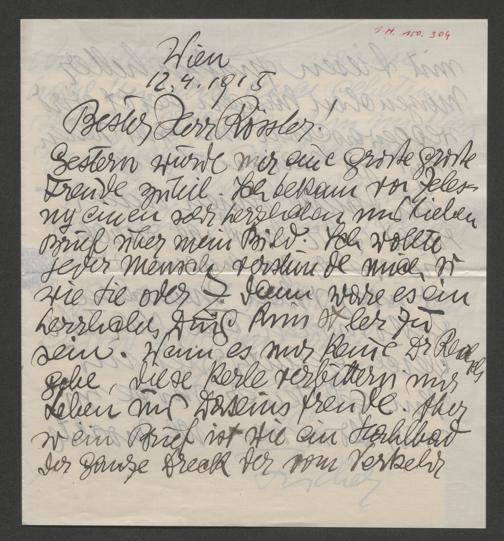 I.N. 150.304
Wien
12.4.1915
Bester Herr Rössler!
Gestern wurde mir eine große große
Freude zuteil. Ich bekam von
einen sehr herzlichen und lieben
Brief über mein Bild. Ich wollte
jeder Mensch verstünde mich so
wie Sie oder dann wäre es ein
herrliches Ding Künstler zu
sein. Wenn es nur keine Dr
gäbe, diese Kerle verbittern mir
Leben und Daseinsfreude. Aber
so ein Brief ist wie ein Stahlbad
der ganze Dreck der vom Verkehr